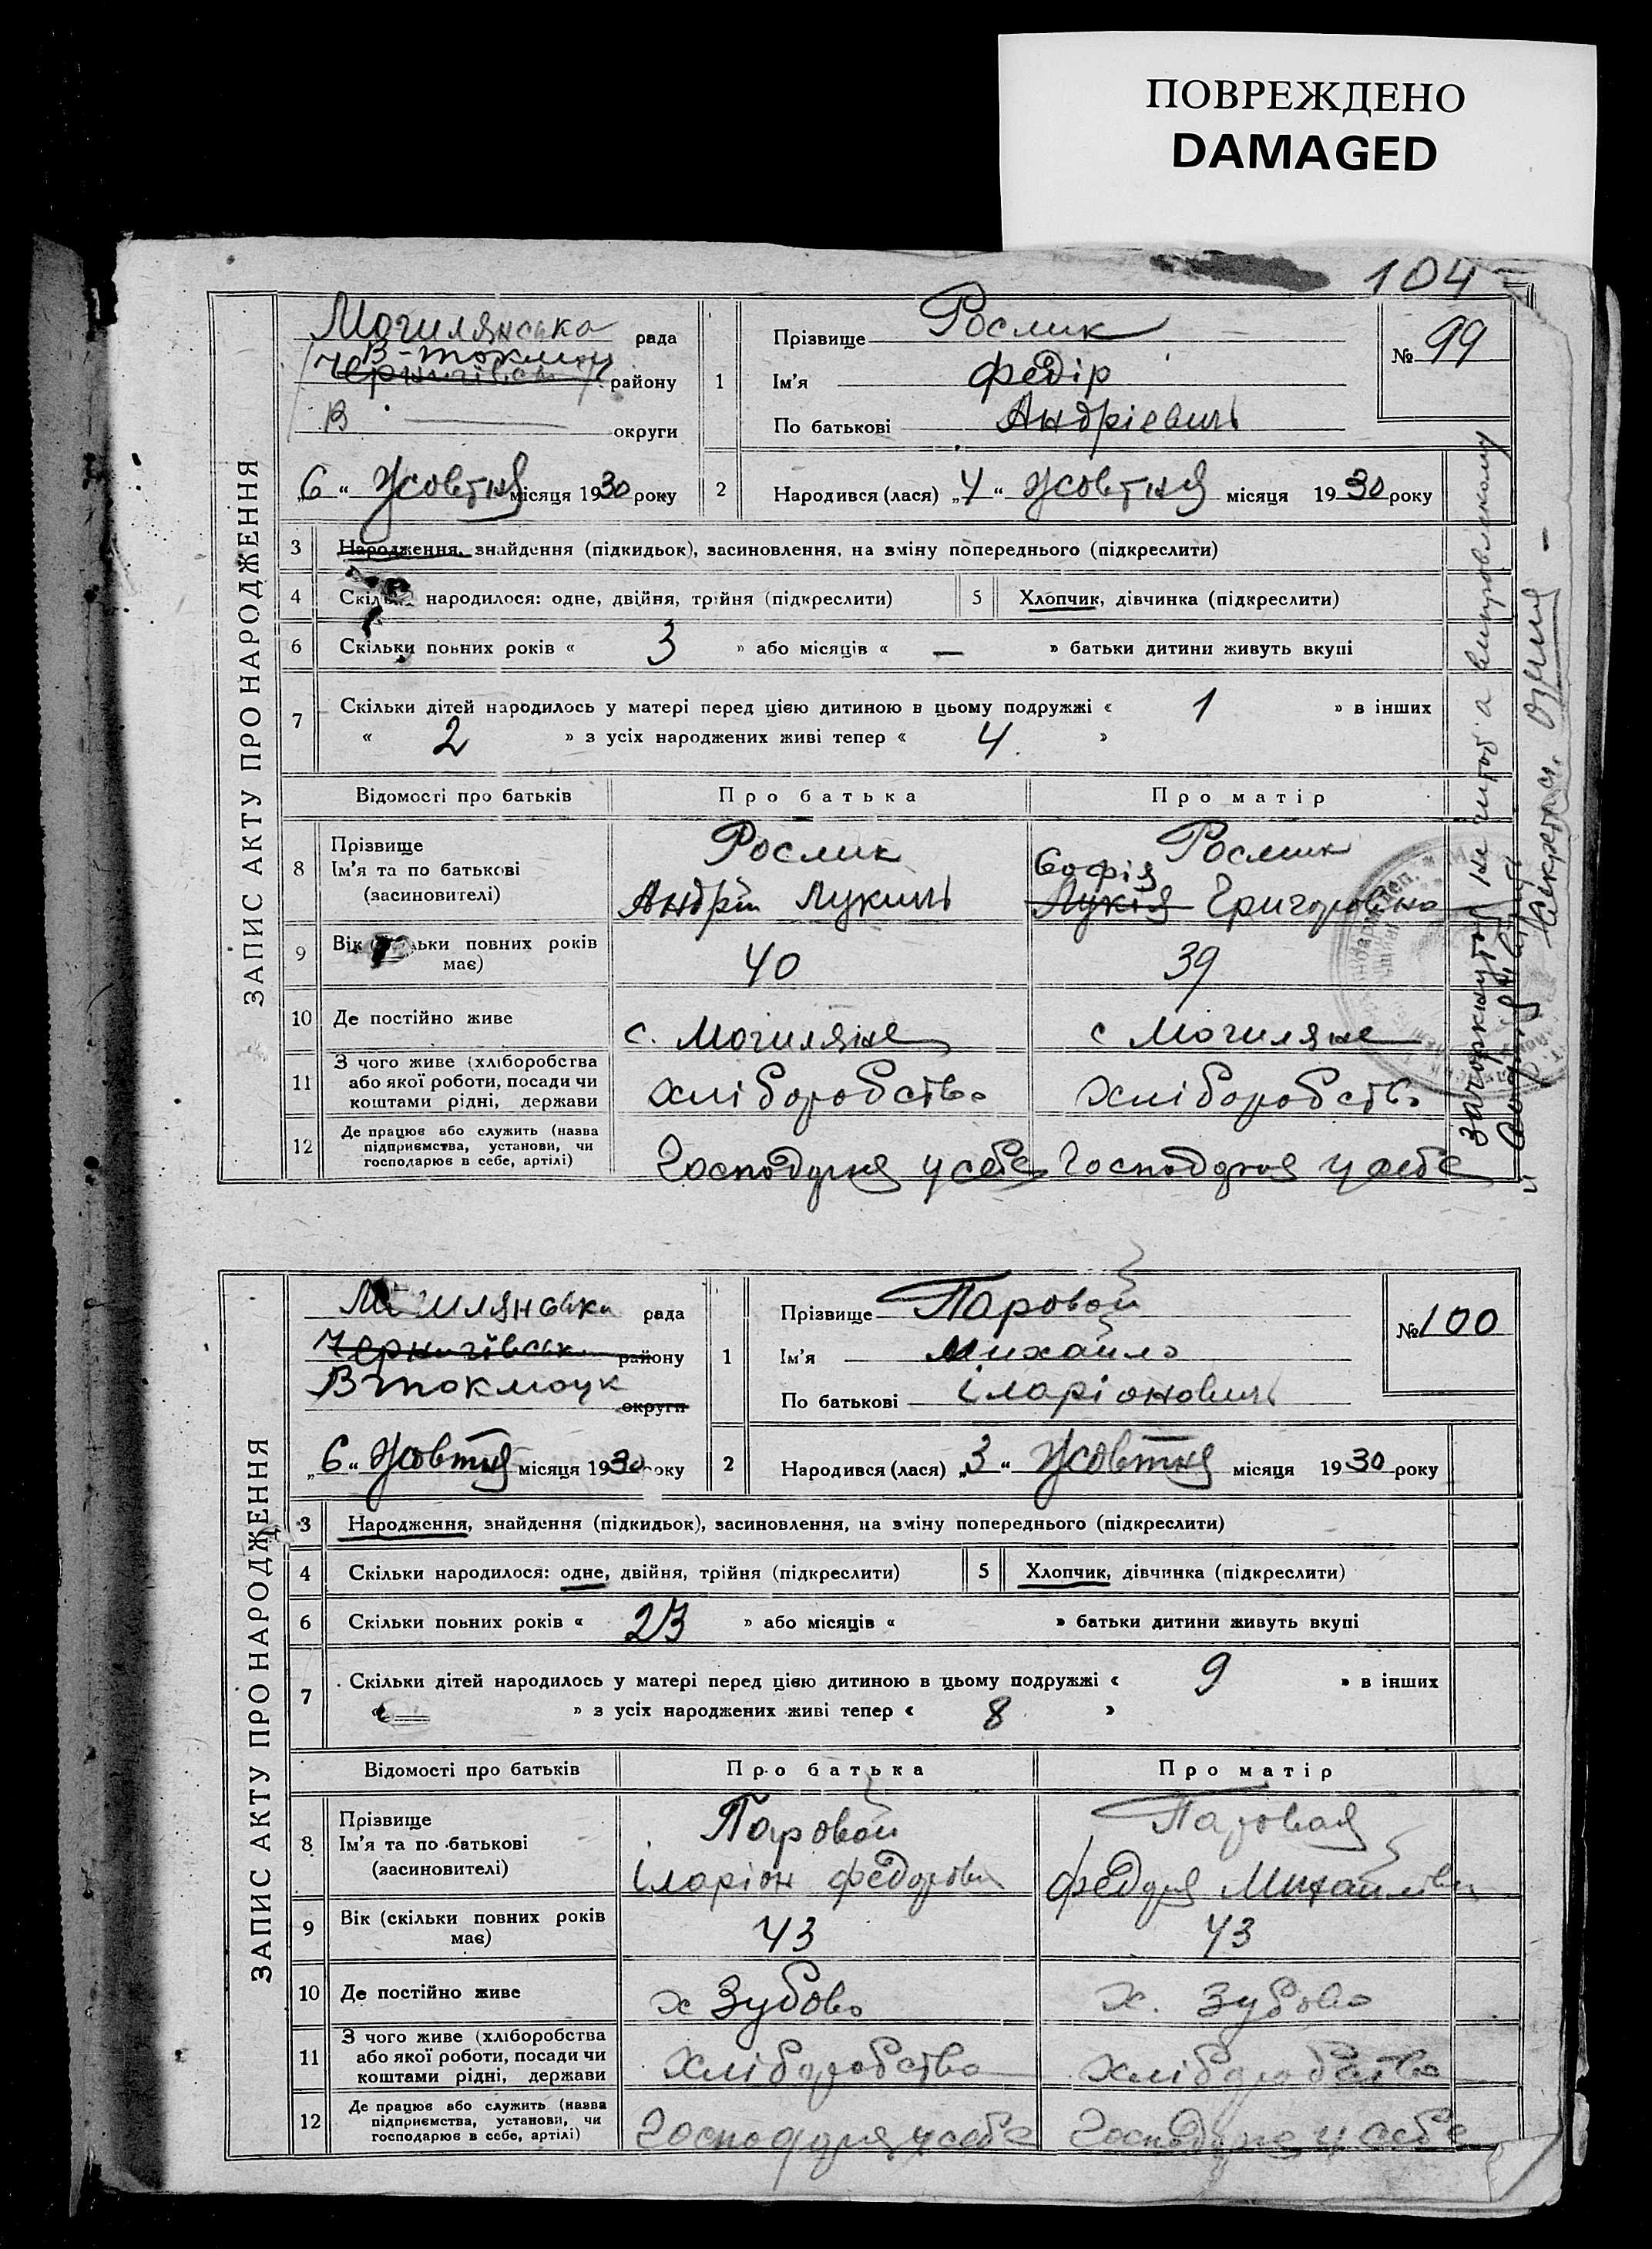 ПОВРЕЖДЕНО
DAMAGED
104
ЗАПИС АКТУ ПРО НАРОДЖЕННЯ
Могилянська рада
В-токмоц
Чернигівськ району
В округи
„6“ Жовтня місяця 1930 року
1 Прізвище Рослик
Ім'я Федір
По батькові Андрієвичь
№ 99
2 Народився (лася) „4“ Жовтня місяця 1930 року
3 Народження, знайдення (підкидьок), засиновлення, на зміну попереднього (підкреслити)
4 Скільки народилося: одне, двійня, трійня (підкреслити) 5 Хлопчик, дівчинка (підкреслити)
6 Скільки повних років « 3 » або місяців « — » батьки дитини живуть вкупі
7 Скільки дітей народилось у матері перед цією дитиною в цьому подружжі « 1 » в інших
« 2 » з усіх народжених живі тепер « 4 »
Відомості про батьків Про батька Про матір
8 Прізвище
Ім'я та по батькові
(засиновителі)
Рослик
Андрій Лукичь
Рослик
Софія
Лукія Григоровна
9 Вік (скільки повних років має) 40 39
10 Де постійно живе с. Могиляне с Могиляне
11 З чого живе (хліборобства
або якої роботи, посади чи
коштами рідні, держави
хліборобство хліборобство
12 Де працює або служить (назва
підприємства, установи, чи
господарює в себе, артілі)
Господуря у себе Господуря у себе
зачоркнуто не читоб а виправлєному
ЗАПИС АКТУ ПРО НАРОДЖЕННЯ
Могилянська рада
Чернигівськ району
Втокмоцк
округи
„6“ Жовтня місяця 1930 року
1 Прізвище Паровой
Ім'я Михайло
По батькові Іларіоновичь
№ 100
2 Народився (лася) „3“ Жовтня місяця 1930 року
3 Народження, знайдення (підкидьок), засиновлення, на зміну попереднього (підкреслити)
4 Скільки народилося: одне, двійня, трійня (підкреслити) 5 Хлопчик, дівчинка (підкреслити)
6 Скільки повних років « 23 » або місяців « » батьки дитини живуть вкупі
7 Скільки дітей народилось у матері перед цією дитиною в цьому подружжі « 9 » в інших
« — » з усіх народжених живі тепер « 8 »
Відомості про батьків Про батька Про матір
8 Прізвище
Ім'я та по батькові
(засиновителі)
Паровой
Іларіон Федорович
Паровая
Федора Михайлівна
9 Вік (скільки повних років має) 43 43
10 Де постійно живе х Зубово х. Зубово
11 З чого живе (хліборобства
або якої роботи, посади чи
коштами рідні, держави
хліборобство хліборобство
12 Де працює або служить (назва
підприємства, установи, чи
господарює в себе, артілі)
Господуря у себе Господуря у себе